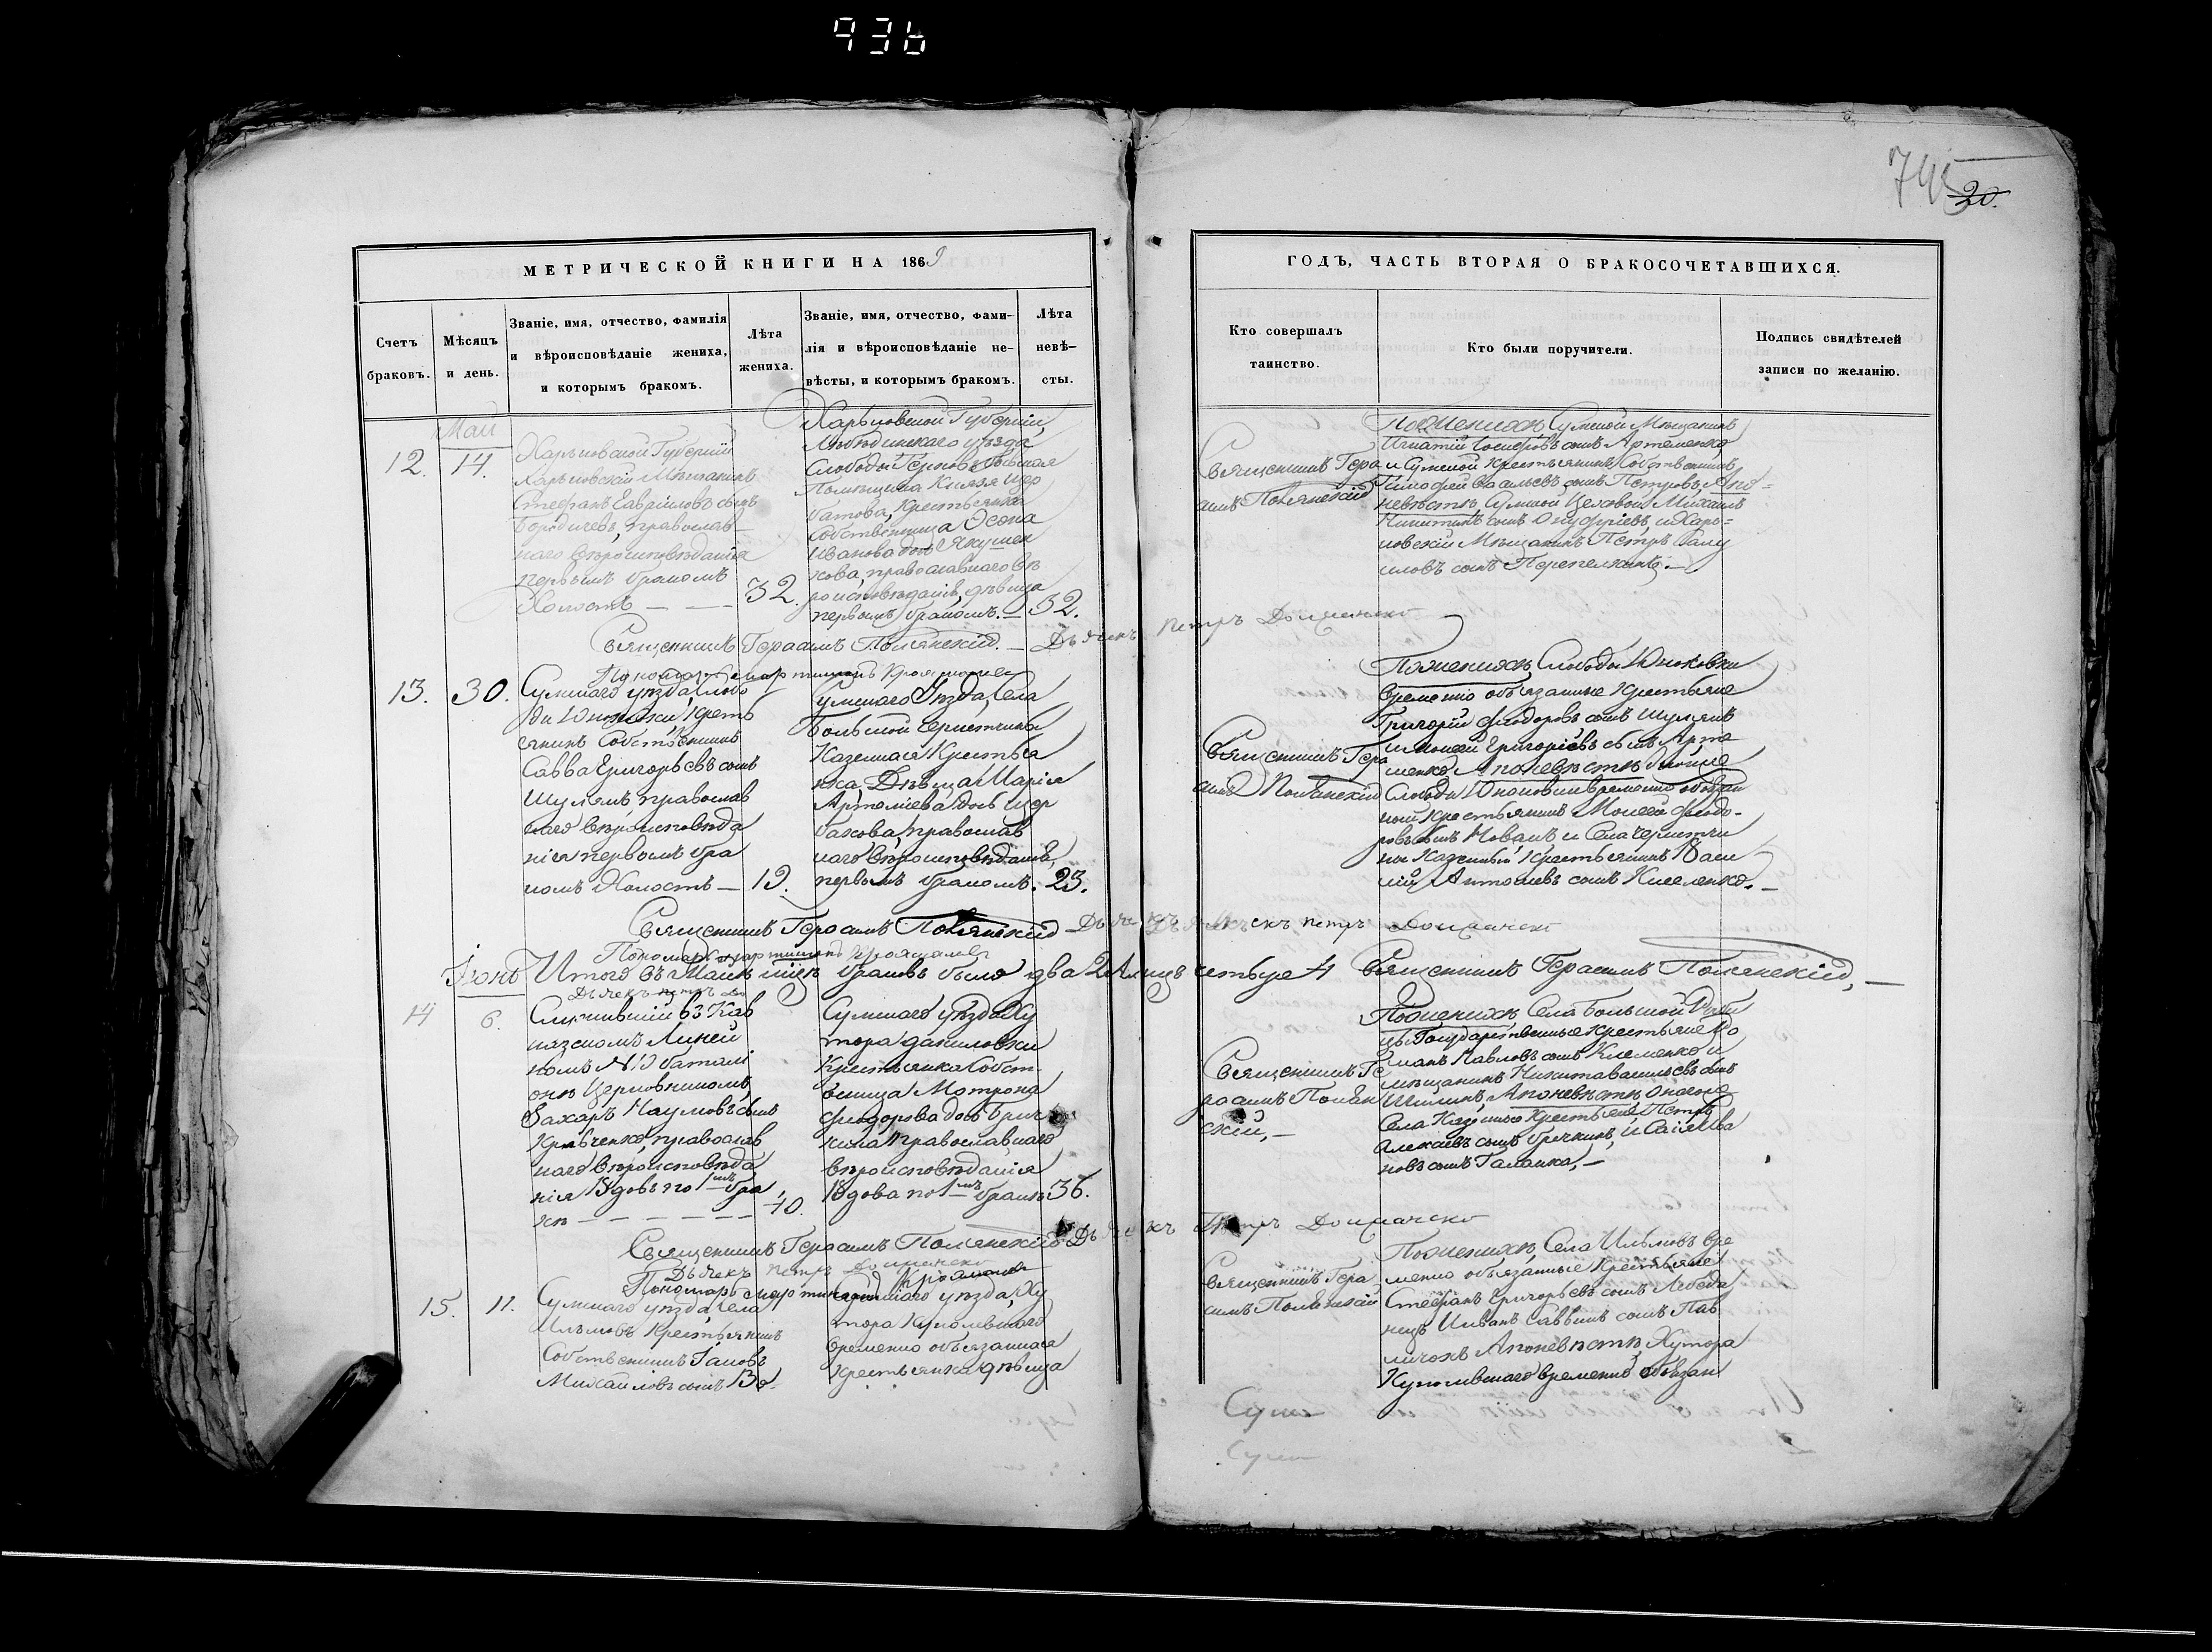 936
745
20.
МЕТРИЧЕСКОЙ КНИГИ НА 1869
Счетъ
браковъ.
Мѣсяцъ
и день.
Званіе, имя, отчество, фамилія
и вѣроисповѣданіе жениха,
и которымъ бракомъ.
Лѣта
жениха.
Званіе, имя, отчество, фами-
лія и вѣроисповѣданіе не-
вѣсты, и которымъ бракомъ.
Лѣта
невѣ-
сты.
ГОДЪ, ЧАСТЬ ВТОРАЯ О БРАКОСОЧЕТАВШИХСЯ.
Кто совершалъ
таинство.
Кто были поручители.
Подпись свидѣтелей
записи по желанію.
Май
12. 14.
Харьковской Губерніи
Харьковскій Мѣщанинъ
Стефанъ Гавріиловъ сынъ
православ
наго вѣроисповѣданія
первымъ бракомъ
Холостъ — — —
32.
Харьковской Губерніи,
Лебединскаго уѣзда
Слободы
Помѣщика Князя Щер
батова, крестьянка
собственница
Иванова дочь Якушен
кова, православнаго вѣ
роисповѣданія, дѣвица
первымъ бракомъ. —
32.
Священникъ Гера
симъ Полянскій
По женихѣ Сумской Мѣщанинъ
Игнатій Іосифовъ сынъ Артеменко,
и Сумской крестьянинъ собственникъ
Тимофей Васильевъ сынъ Петровъ, А по
невѣстѣ, Сумской Цеховой Михаилъ
Никитинъ сынъ Онуфріевъ, и Харь=
ковскій Мѣщанинъ Петръ
сынъ —
Священникъ Герасимъ Полянскій. — Дьячекъ Петръ Доманско
Пономарь Мартиніанъ
13. 30.
Сумскаго уѣзда, Слобо
ды Юнаковки, Кресть
янинъ Собственникъ
Савва Григорьевъ сынъ
Шумемъ православ
наго вѣроисповѣда
нія первымъ бра
комъ Холостъ —
19.
Сумскаго Уѣзда, Села
Большой Чернетчины
Казенная Крестья
нка, Дѣвица Марія
Артеміева дочь Щер
бакова, православ
наго вѣроисповѣданія,
первымъ бракомъ.
23.
Священникъ Гера
симъ Полянскій
По женихѣ, Слободы Юнаковки
временно обязанные крестьяне
Григорій Федоровъ сынъ
Григоріевъ сынъ Арте
менко, А по невѣстѣ
Слободы Юнаковки временно обязан
ный крестьянинъ Моисей Федо-
ровъ сынъ и Села Чернетчи
ны Казенный Крестьянинъ Васи
лій сынъ Киселенко. —
Священникъ Герасимъ Полянскій — Дьячекъ Петръ Доманско
Пономарь Мартиніанъ
Іюнь
Итого въ Маѣ мцѣ браковъ было два 2 А лицъ четыре 4 Священникъ Герасимъ Полянскій, —
Дьячекъ Петръ До
14 6.
Служившій въ Кав
казскомъ Линей
номъ № баталі
онѣ Церковникомъ
Захаръ Наумовъ сынъ
Кравченко, православ
наго вѣроисповѣда
нія Вдовъ по 1мъ бра
кѣ — — — — — —
40.
Сумскаго уѣзда Ху
тора Даниловки
Крестьянка Собст
венница Мотрона
Федорова дочь Греч
кина Православнаго
вѣроисповѣданія
Вдова по 1мъ бракѣ
36.
Священникъ Ге
расимъ Полян
скій, —
По женихѣ Села Большой
Государственные крестьяне Ро
манъ Павловъ сынъ Клеменко и
мѣщанинъ Никита Васильевъ сынъ
А по невѣстѣ онаго же
Села Казенные Крестьяне, Петръ
Алексѣевъ сынъ Гречкинъ, и Савва Ива
новъ сынъ Галанка, —
Священникъ Герасимъ Полянскій Дьячекъ Петръ Доманско
Дьячекъ Петръ Доманско
Пономарь Мартиніанъ
15. 11.
Сумскаго уѣзда, Села
Ильмовъ Крестьянинъ
Собственникъ Іаковъ
Михаиловъ сынъ Во-
Сумскаго уѣзда, Ху
тора
временно обязанная
Крестьянка дѣвица
Священникъ Гера
симъ Полянскій
По женихѣ, Села Ильмовъ вре
менно обязанные Крестьяне
Стефанъ Григорьевъ сынъ Лебеди
нецъ Иванъ Саввинъ сынъ Пав
личокъ А по невѣстѣ, Хутора
временно обязан
Сумс
Сумс